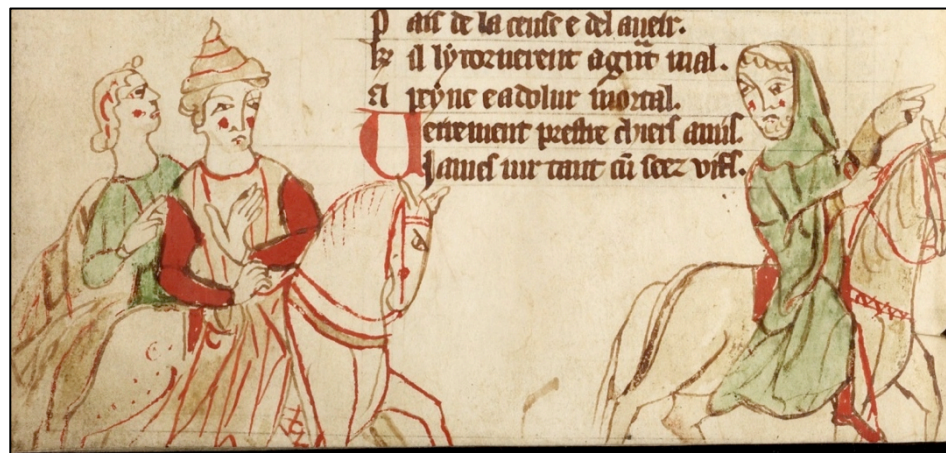 P ais de la ceuse e del aueir.
il ly tornerent a gnt mal.
A peyne e a dolur mortal.
Ueirement prestre chiers amis.
James tant cū seez vifs.